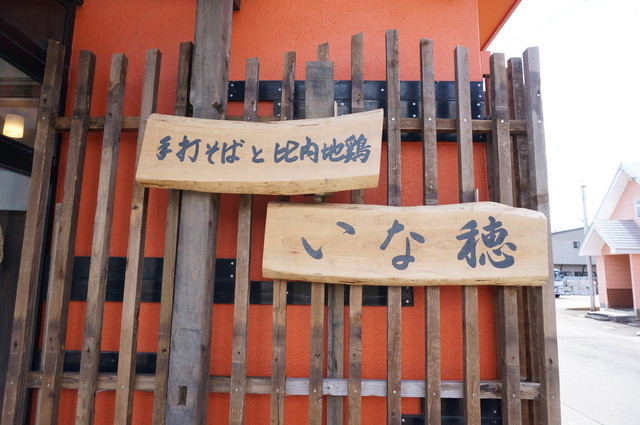 手打そばと比内地鶏
いな穂